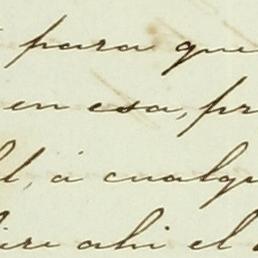 para que
en esa, pr
l, á cualqu
ahi el